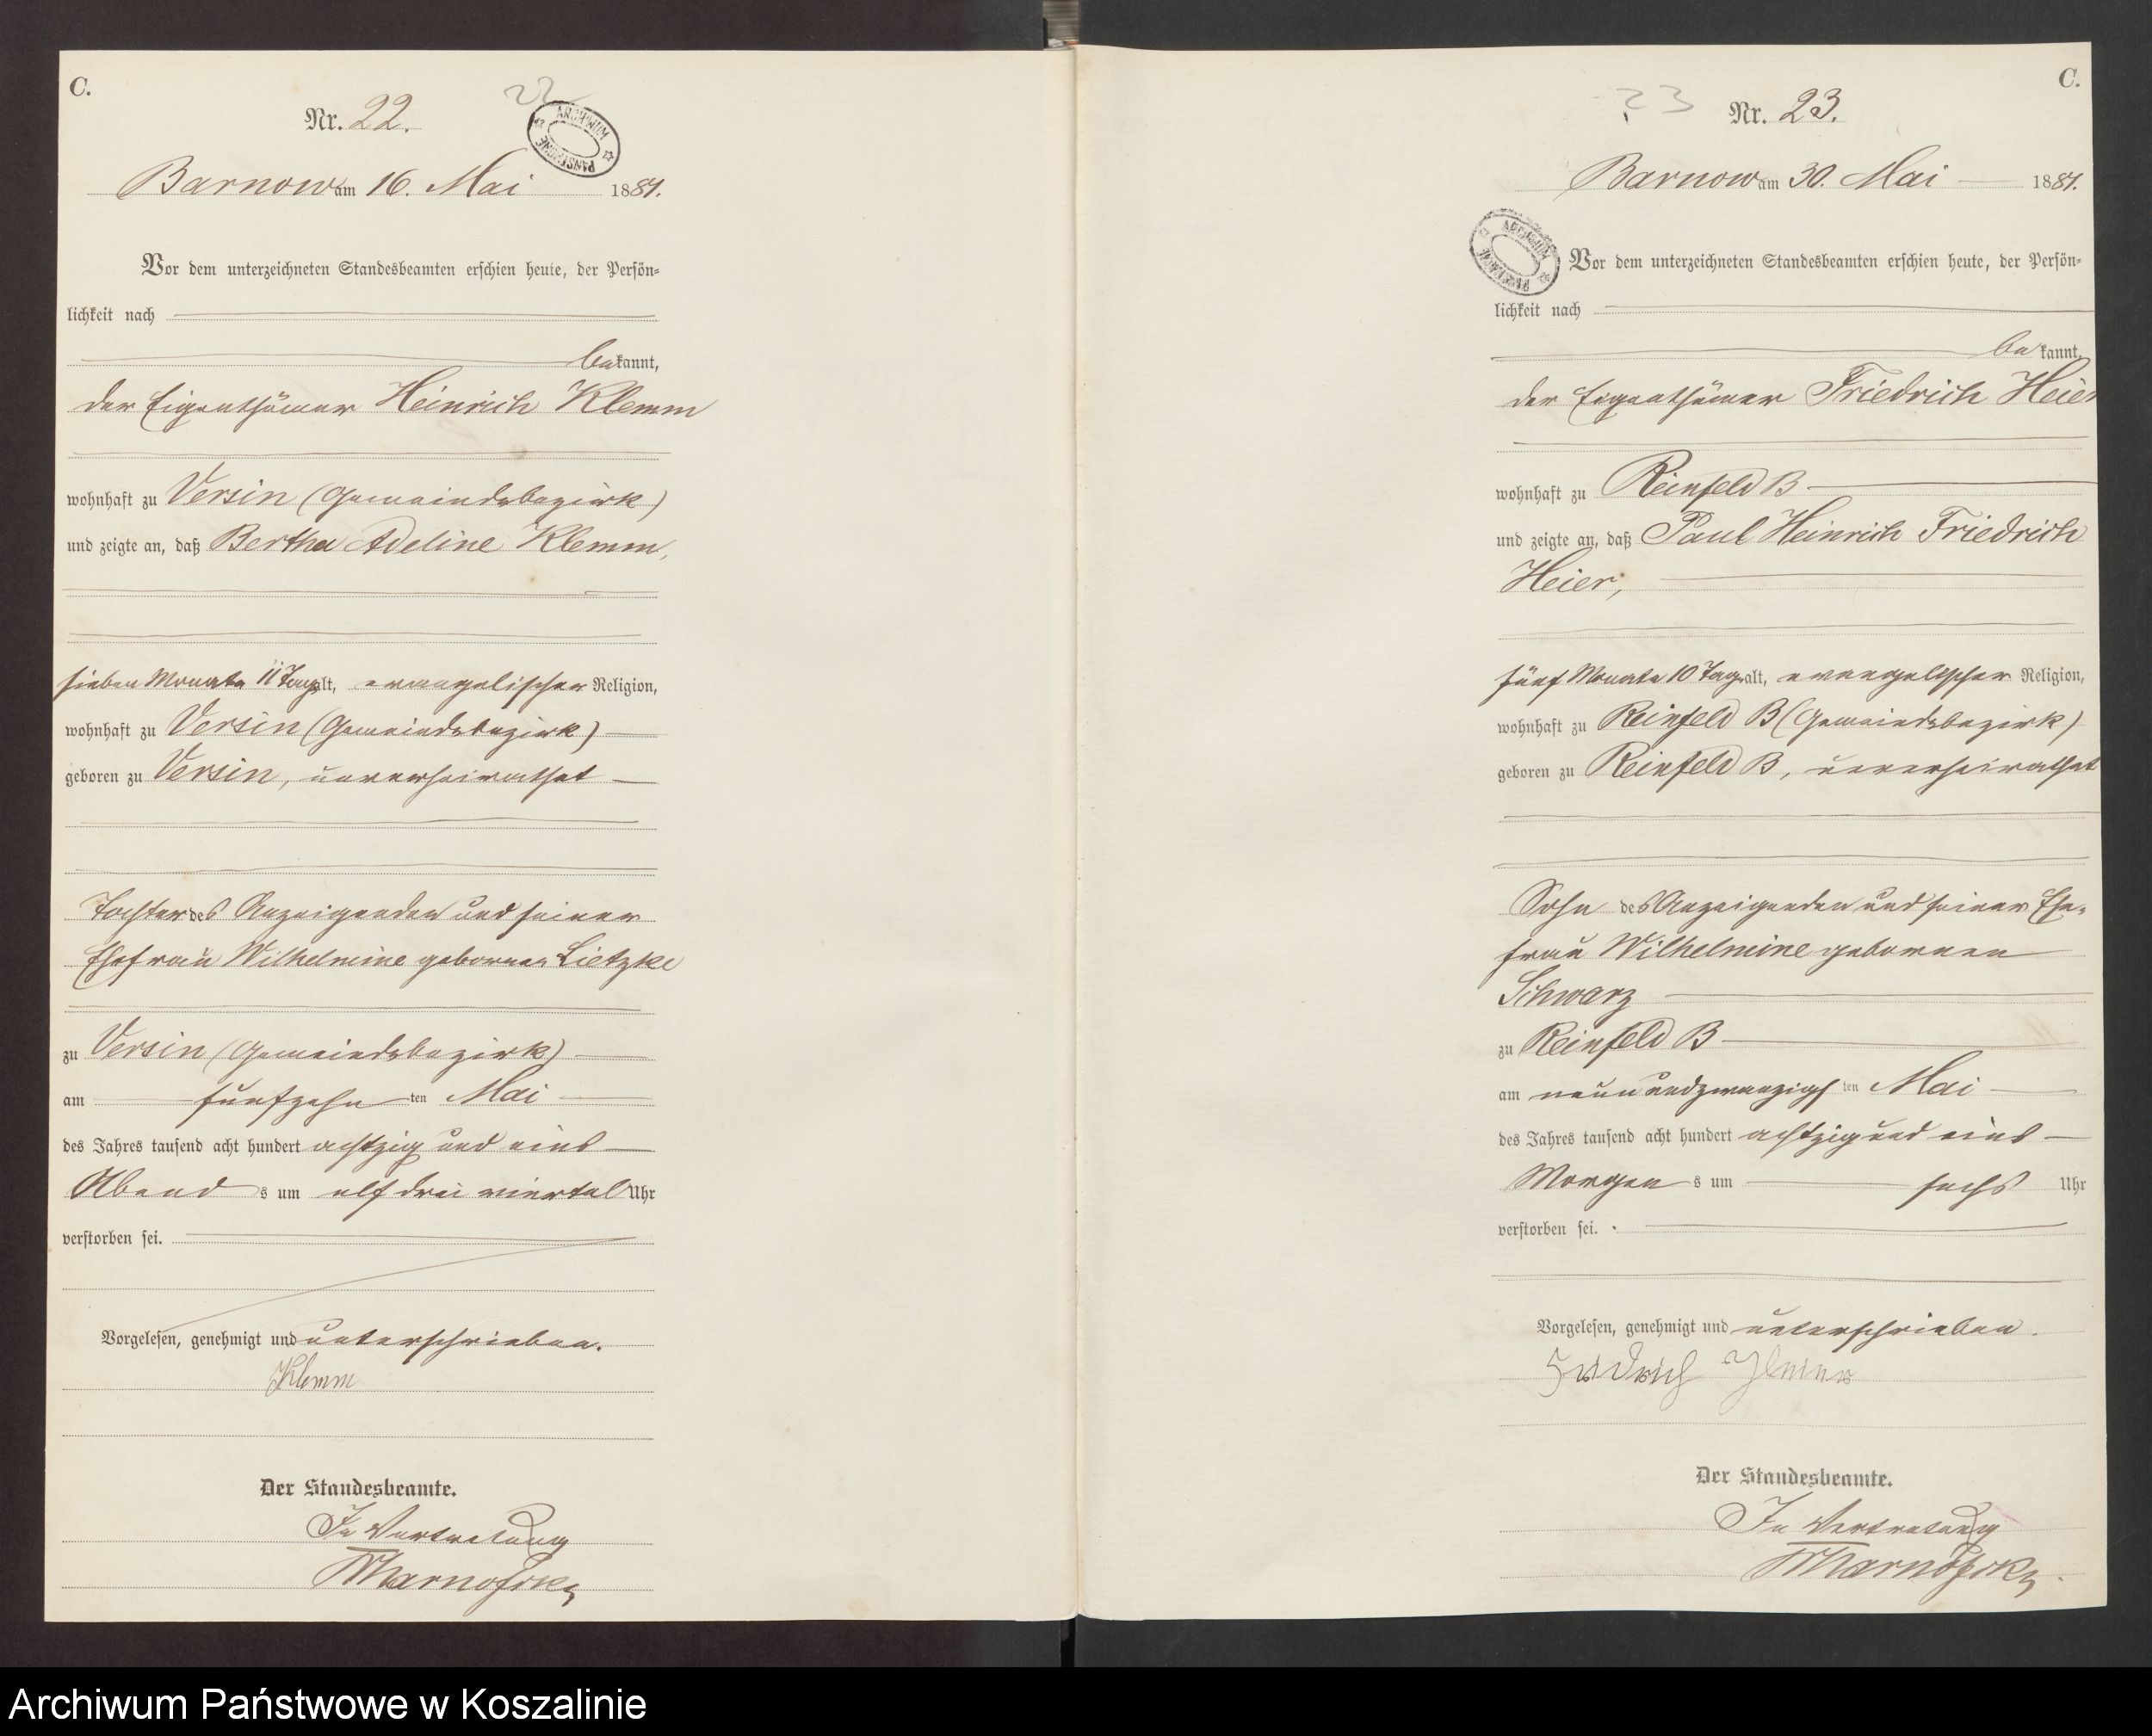 C.
Nr. 22.
22
ARCHIWUM PAŃSTWOWE
Barnow am 16. Mai 1881.
Vor dem unterzeichneten Standesbeamten erschien heute, der Persön-
lichkeit nach
bekannt,
der Eigenthümer Heinrich Klemm
wohnhaft zu Versin (Gemeindebezirk)
und zeigte an, daß Bertha Adeline Klemm,
sieben Monate 11 Tage alt, evangelischer Religion,
wohnhaft zu Versin (Gemeindebezirk)
geboren zu Versin, unverheirathet
Tochter des Anzeigenden und seiner
Ehefrau Wilhelmine geborenen Lietzke
zu Versin (Gemeindebezirk)
am fünfzehnten Mai
des Jahres tausend acht hundert achtzig und eins
Abends um elf drei viertel Uhr
verstorben sei.
Vorgelesen, genehmigt und unterschrieben.
Klemm
Der Standesbeamte.
In Vertretung
C.
23
Nr. 23.
Barnow am 30. Mai 1881.
ARCHIWUM PAŃSTWOWE
Vor dem unterzeichneten Standesbeamten erschien heute, der Persön-
lichkeit nach
bekannt,
der Eigenthümer Friedrich Heier
wohnhaft zu Reinfeld B
und zeigte an, daß Paul Heinrich Friedrich
Heier,
fünf Monate 10 Tage alt, evangelischer Religion,
wohnhaft zu Reinfeld B (Gemeindebezirk)
geboren zu Reinfeld B, unverheirathet
Sohn des Anzeigenden und seiner Ehe-
frau Wilhelmine geborenen
Schwarz
zu Reinfeld B
am neunundzwanzigsten Mai
des Jahres tausend acht hundert achtzig und eins
Morgens um sechs Uhr
verstorben sei.
Vorgelesen, genehmigt und unterschrieben.
Friedrich
Der Standesbeamte.
In Vertretung
Archiwum Państwowe w Koszalinie